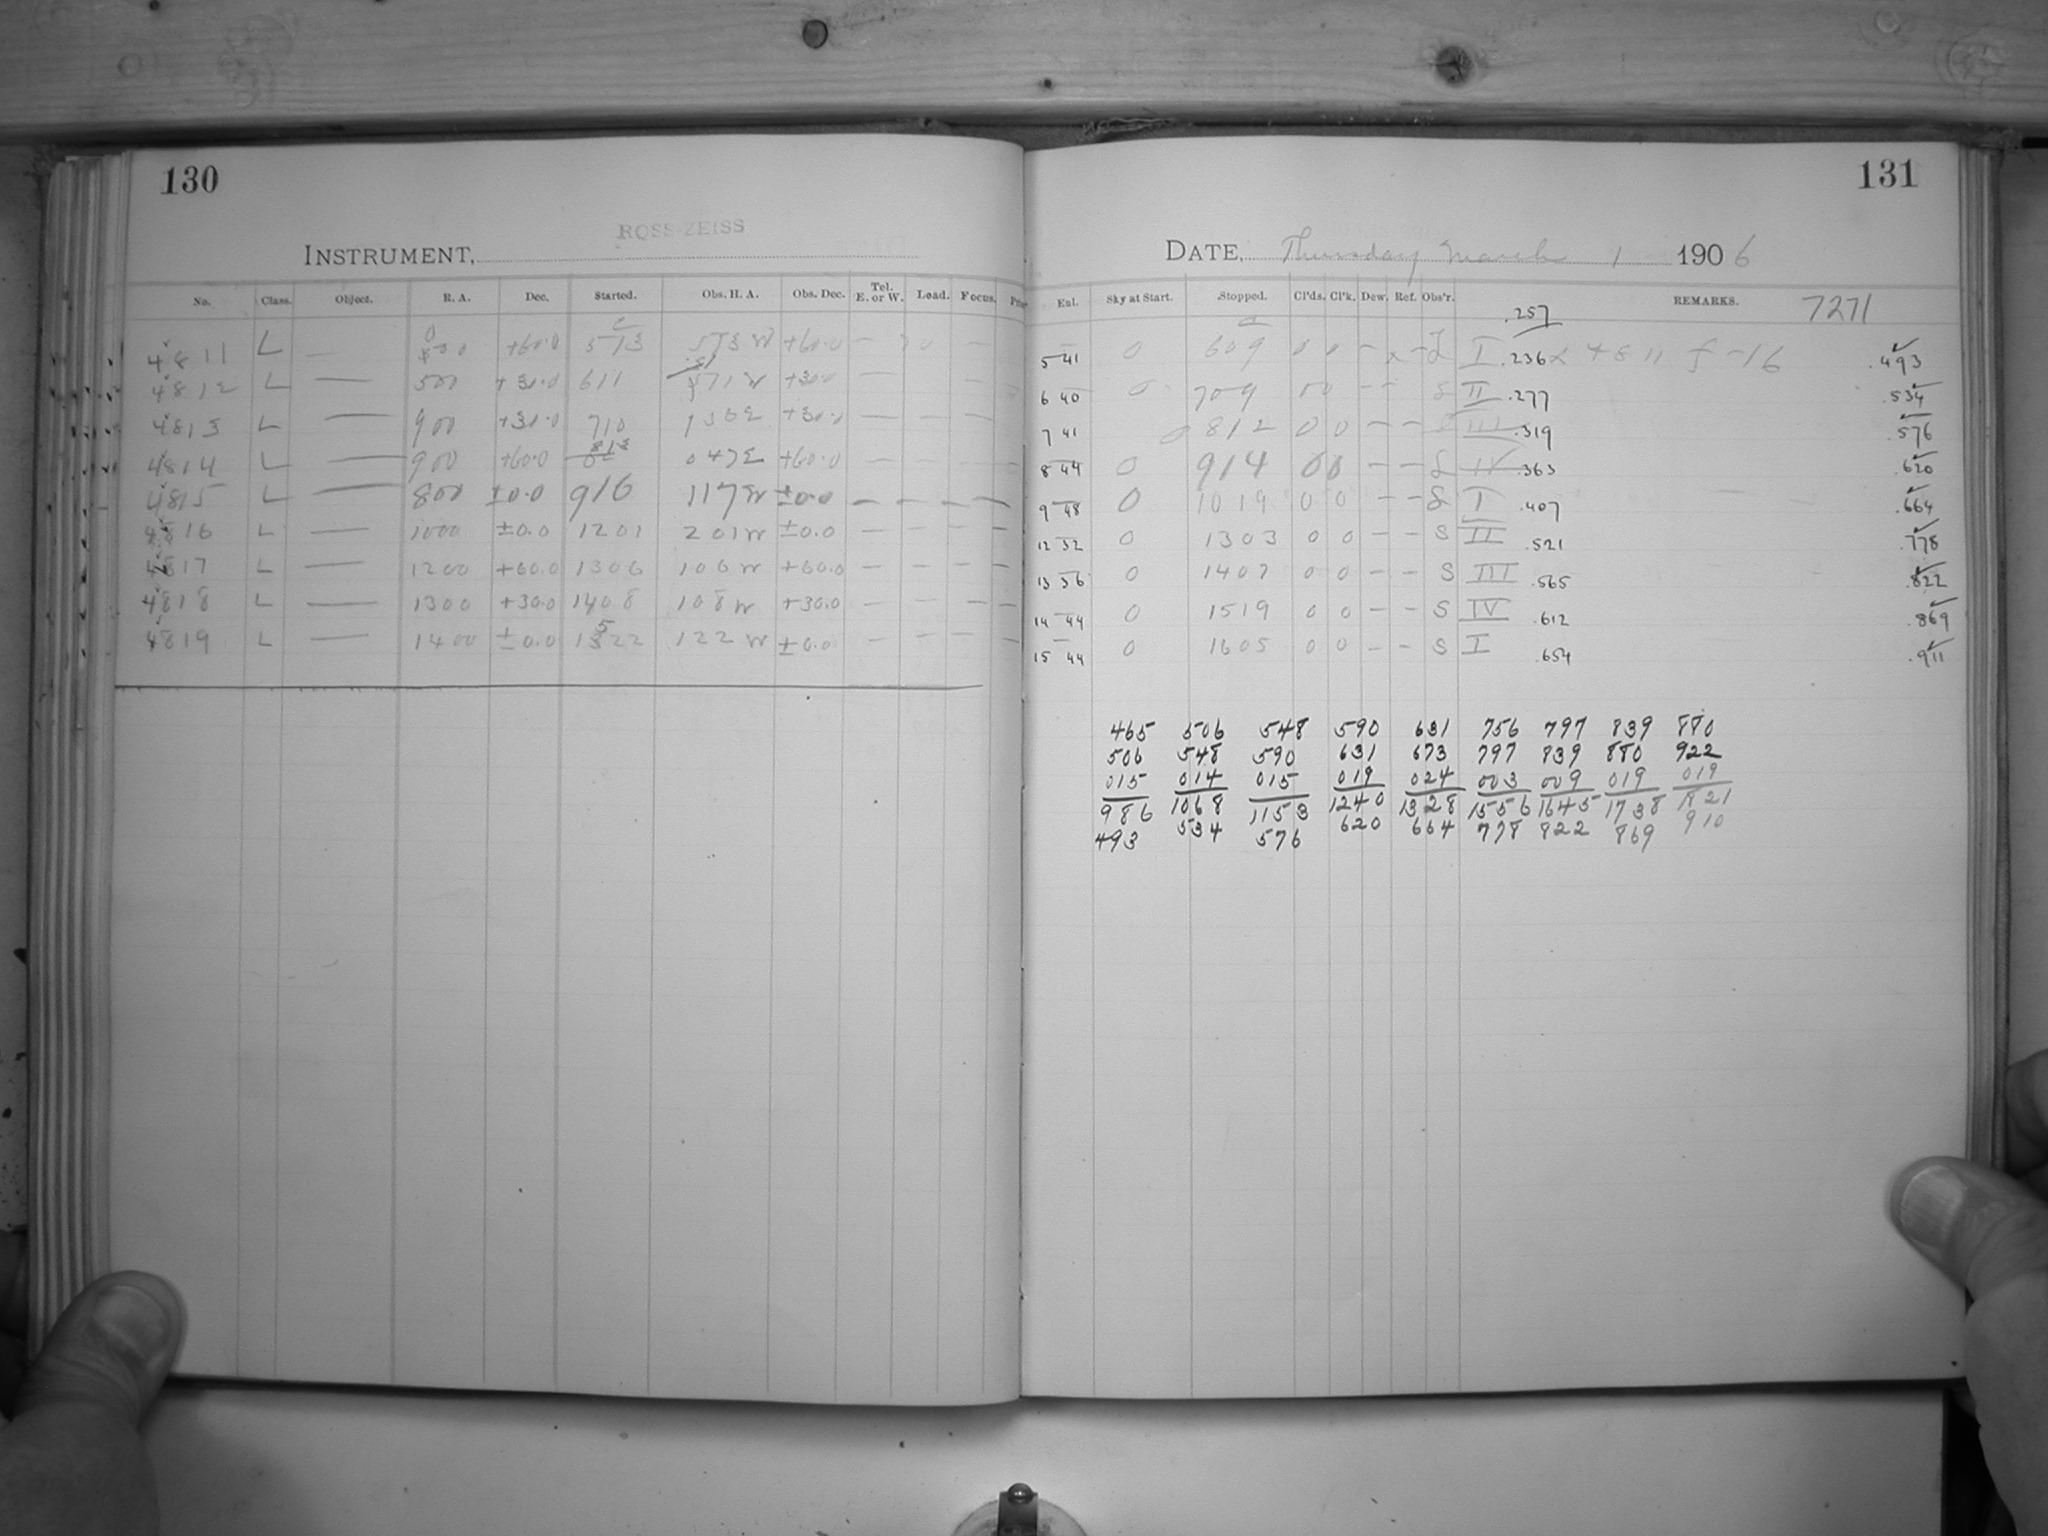 130
ROSS-ZEISS
INSTRUMENT,
No. Class. Object. R. A. Dec. Started. Obs. H. A. Obs. Dec. Tel. E. or W. Load. Focus.
4811 L — +60.0 513 513 W +60.0 —
4812 L — 500 +30.0 611 W +30.0 —
4813 L — 900 +30.0 710 136E +30.0 — — —
4814 L — 900 +60.0 813 047E +60.0 — — —
4815 L — 800 ±0.0 916 117W ±0.0 — — — —
4816 L — 1000 ±0.0 1201 201W ±0.0 — — — —
4817 L — 1200 +60.0 1306 106W +60.0 — — — —
4818 L — 1300 +30.0 1408 108W +30.0 — — — —
4819 L — 1400 ±0.0 1522 122W ±0.0 — — — —
131
DATE, Thursday March 1 1906
Eal. Sky at Start. Stopped. Cl'ds. Cl'k. Dew. Ref. Obs'r. REMARKS. 7271
.257
5 41 0 609 0 0 I .236 4811 f -16 .493
6 40 0 709 0 0 — — II .277 .534
7 41 0 812 0 0 — — III .319 .576
8 44 0 914 0 0 — — IV .363 .620
9 48 0 1019 0 0 — — I .407 .664
12 32 0 1303 0 0 — — S II .521 .778
13 36 0 1407 0 0 — — S III .565 .822
14 44 0 1519 0 0 — — S IV .612 .869
15 44 0 1605 0 0 — — S I .654 .911
465 506 548 590 631 756 797 839 880
506 548 590 631 673 797 839 880 922
015 014 015 019 024 003 009 019 019
986 1068 1153 1240 1328 1556 1645 1738 1821
493 534 576 620 664 778 822 869 910